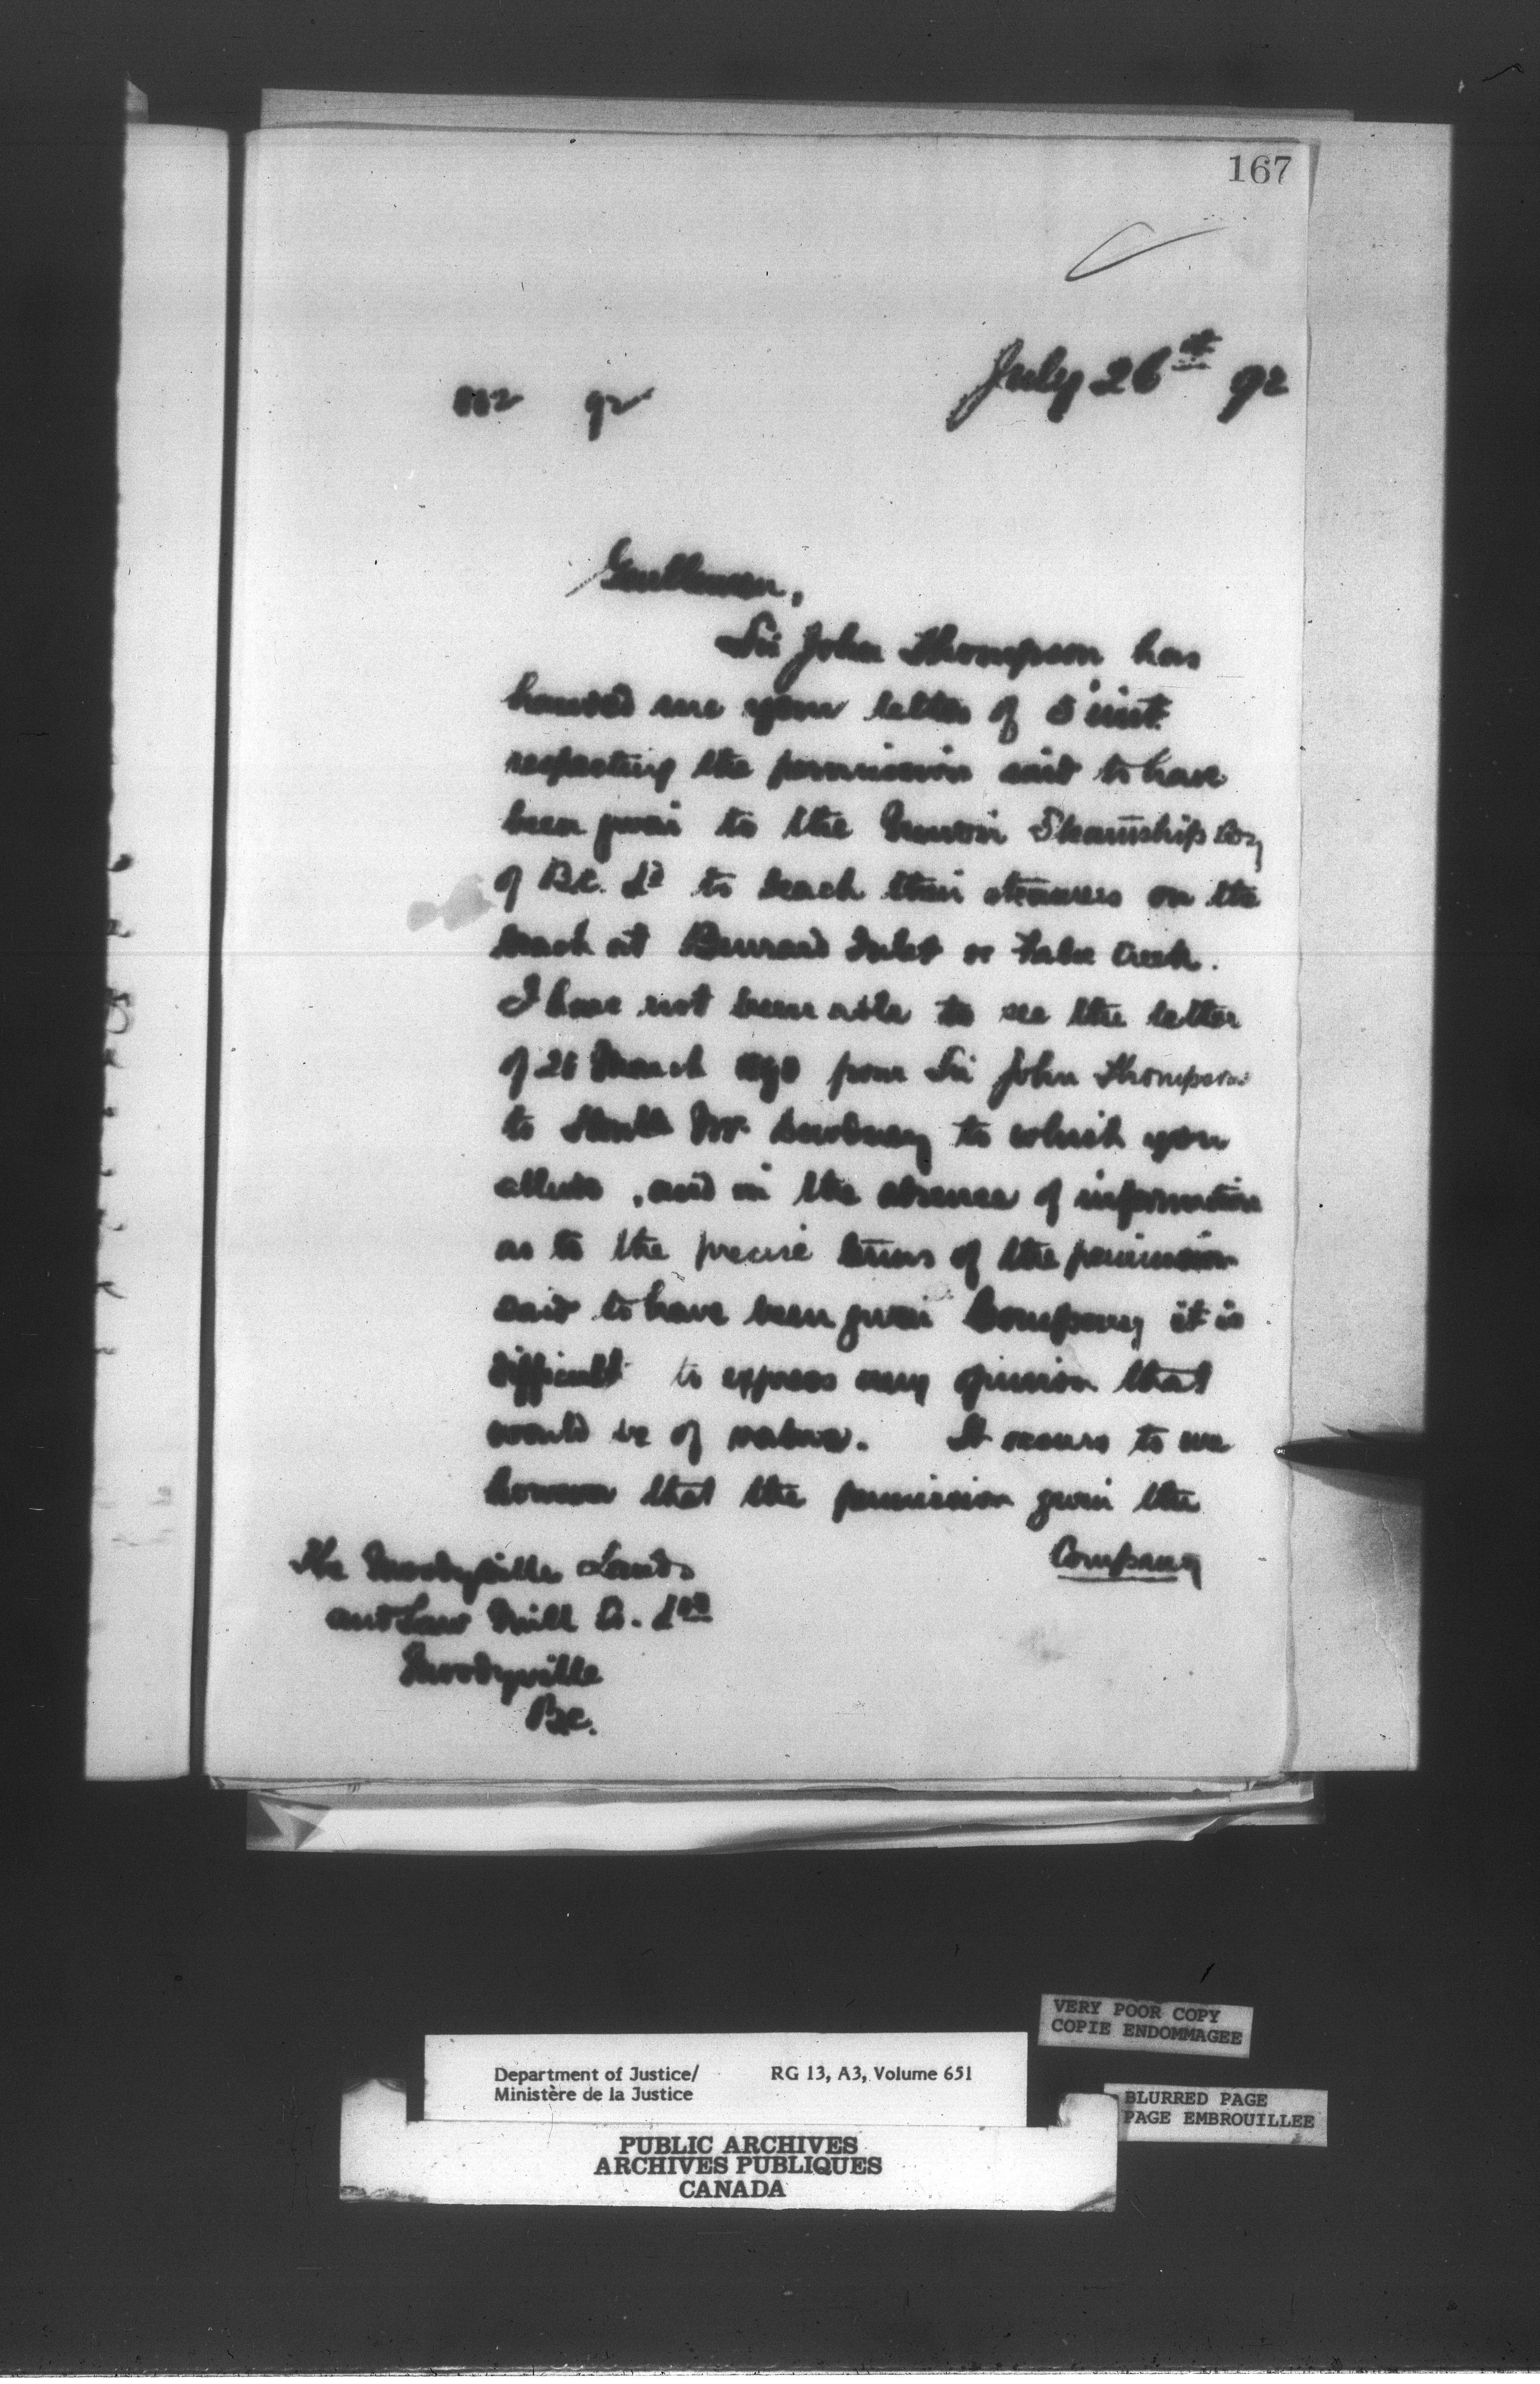 167
July 26th 92
92
Gentlemen,
Sir John Thompson has
handed me your letter of 5 inst.
respecting the permission said to have
been given to the Union Steamship Coy
of B.C. Ld to beach their steamers on the
beach at Burrard Inlet or False Creek.
I have not been able to see the letter
of 26 March 1890 from Sir John Thompson
to Honble Mr. Dewdney to which you
allude, and in the absence of information
as to the precise terms of the permission
said to have been given Company it is
difficult to express any opinion that
would be of value. It occurs to me
however that the permission given the
Company
The Moodyville Lands
and Saw Mill Co. Ltd
Moodyville
B.C.
VERY POOR COPY
COPIE ENDOMMAGEE
Department of Justice/ RG 13, A3, Volume 651
Ministère de la Justice
BLURRED PAGE
PAGE EMBROUILLEE
PUBLIC ARCHIVES
ARCHIVES PUBLIQUES
CANADA